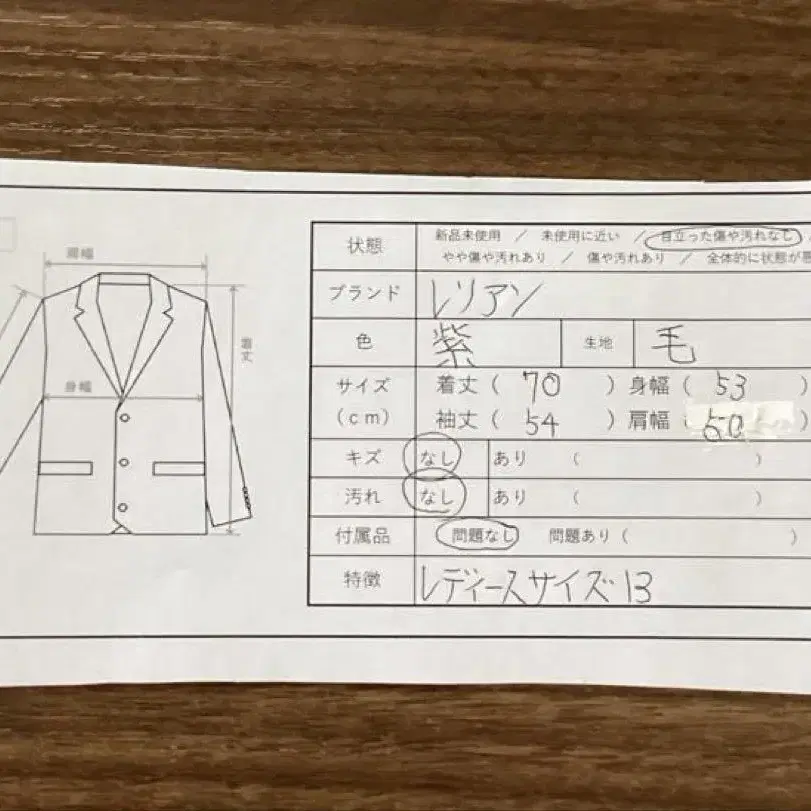 肩幅
着丈
身幅
状態 新品未使用 / 未使用に近い / 目立った傷や汚れなし /
やや傷や汚れあり / 傷や汚れあり / 全体的に状態が悪
ブランド レリアン
色 紫 生地 毛
サイズ 着丈 ( 70 ) 身幅 ( 53 )
(cm) 袖丈 ( 54 ) 肩幅 ( 50 )
キズ なし あり ( )
汚れ なし あり ( )
付属品 問題なし 問題あり ( )
特徴 レディースサイズ13